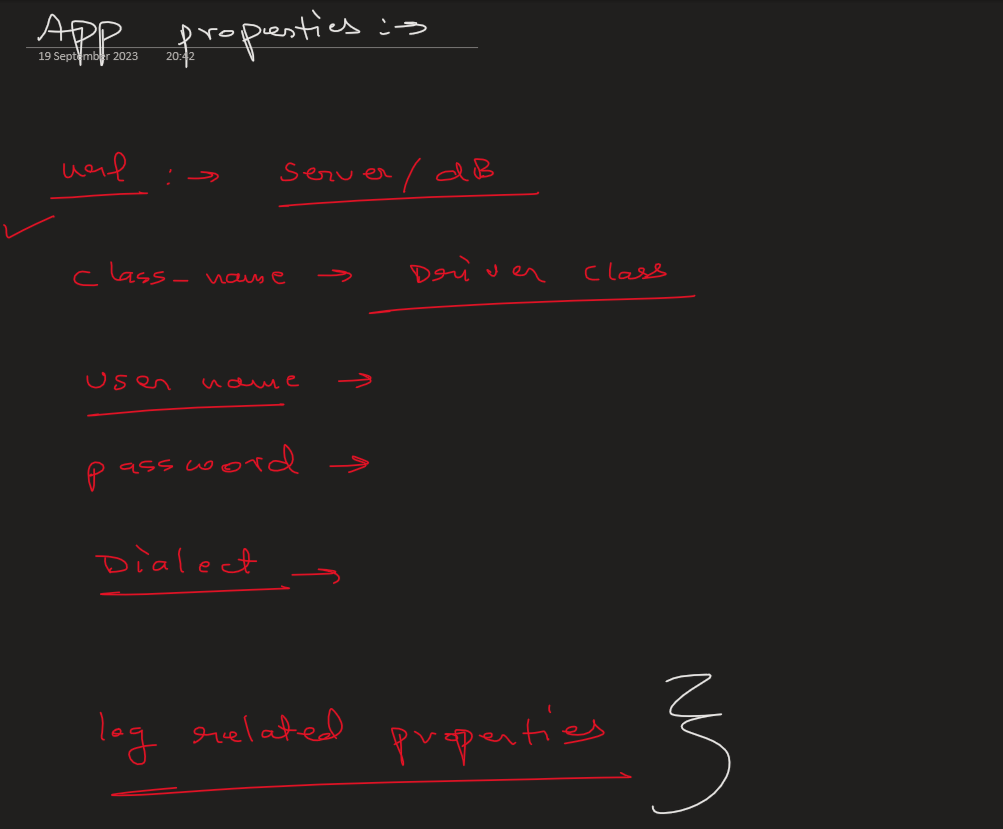 App properties :→
19 September 2023 20:42
url :→ server/dB
class_name → Driver class
user name →
password →
Dialect →
log related properties }